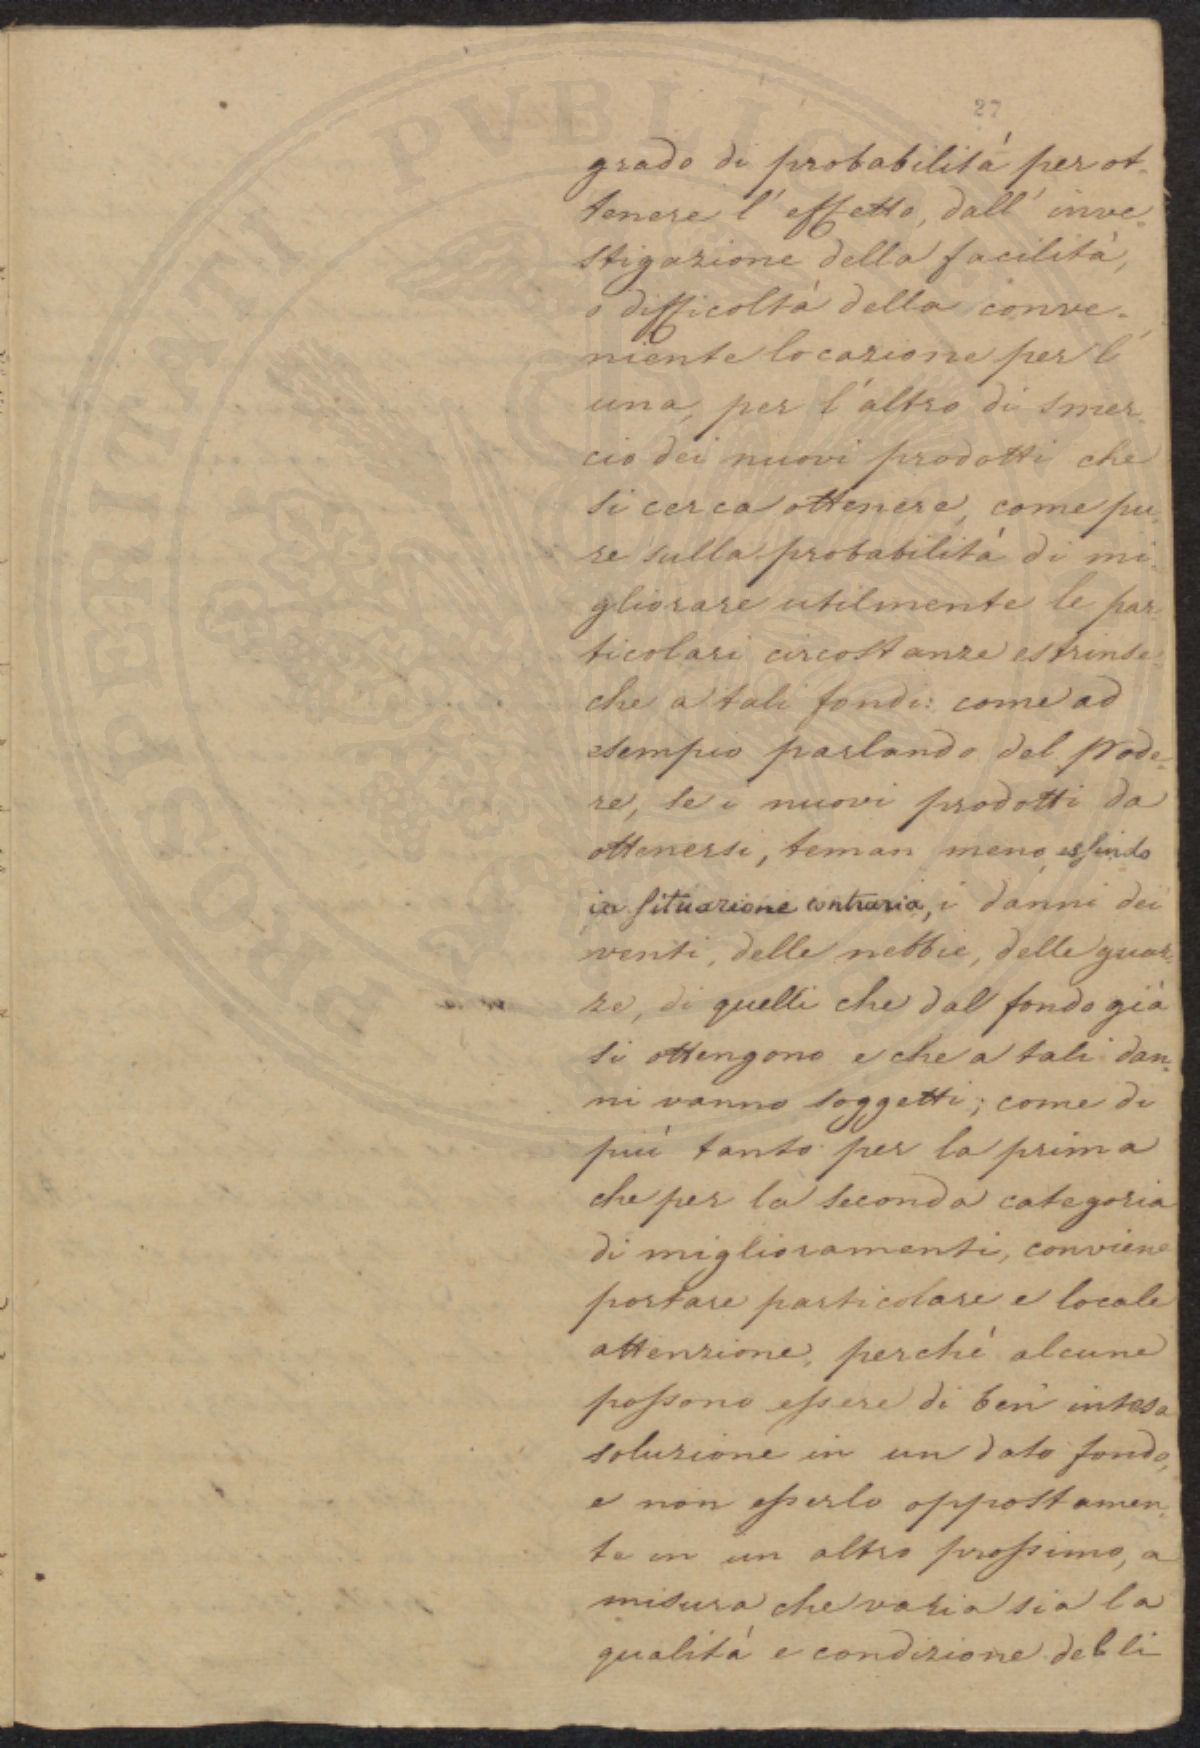 27
grado di probabilitá per ot-
tenere l'effetto, dall'inve-
stigazione della facilità,
o difficoltà della conve-
niente locazione per l'
una, per l'altro di smer-
cio dei nuovi prodotti che
si cerca ottenere, come pu-
re sulla probabilità di mi-
gliorare utilmente le par-
ticolari circostanze estrinse-
che a tali fondi: come ad
esempio parlando del pode-
re, se i nuovi prodotti da
ottenersi, teman meno essendo
in situazione contraria, i danni dei
venti, delle nebbie, delle guaz-
ze, di quelli che dal fondo già
si ottengono e che a tali dan-
ni vanno soggetti; come di
più tanto per la prima
che per la seconda categoria
di miglioramenti, conviene
portare particolare e locale
attenzione, perché alcune
possono essere di ben intesa
soluzione in un dato fondo,
e non esserlo oppostamen-
te in un altro prossimo, a
misura che varia sia la
qualità e condizione delli
PROSPERITATI PVBLICAE